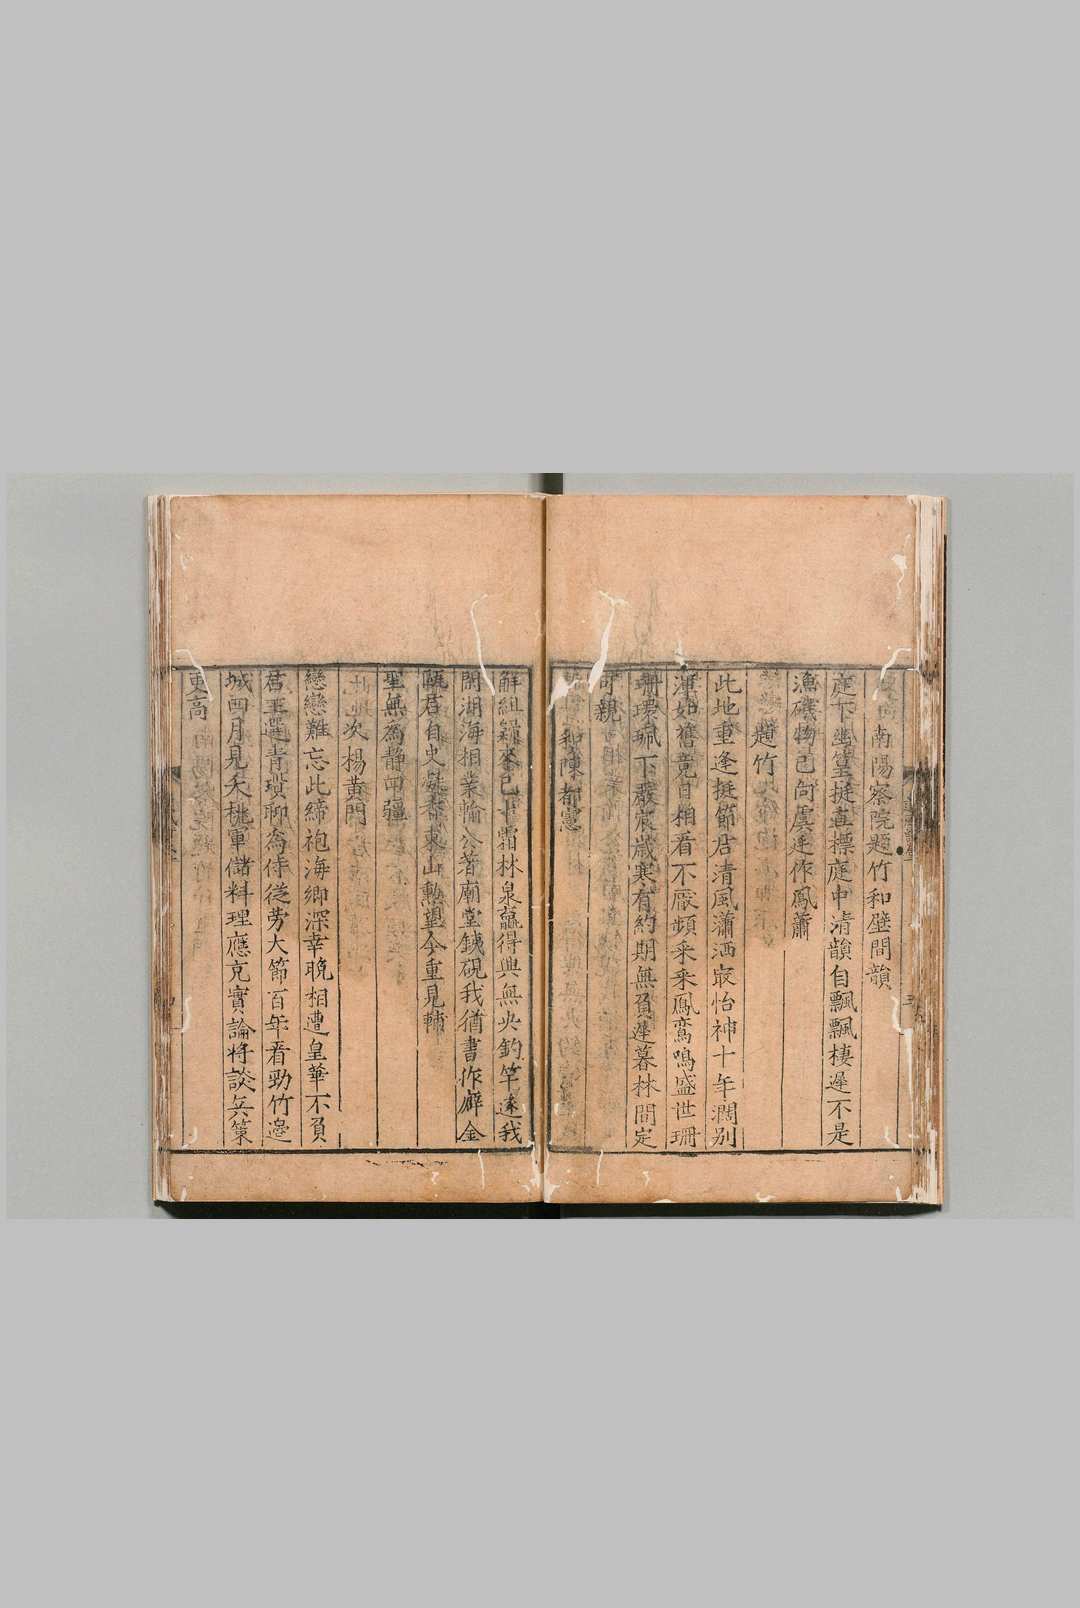 南陽察院題竹和壁間韻
庭下幽篁挺直標庭中清韻自飄飄棲遲不是
漁磯物已向虞廷作鳳簫
題竹
此地重逢挺節居清風瀟洒最怡神十年濶别
渾如舊竟日相看不厭頻采采鳳鸞鳴盛世珊
珊環珮下嚴宸歲寒有約期無負遲暮林間定
可親
和陳都憲
解組歸來已十霜林泉贏得興無央釣竿遠我
閑湖海相業輸公著廟堂鐵硯我猶書作癖金
甌君自
東山勲望今重見輔
聖無爲静四疆
次楊黄門
戀戀難忘此締袍海鄉深幸晚相遭皇華不負
君王選青瑣聊爲侍從勞大節百年看勁竹邊
城四月見夭桃軍儲料理應克實論將談兵策
更高